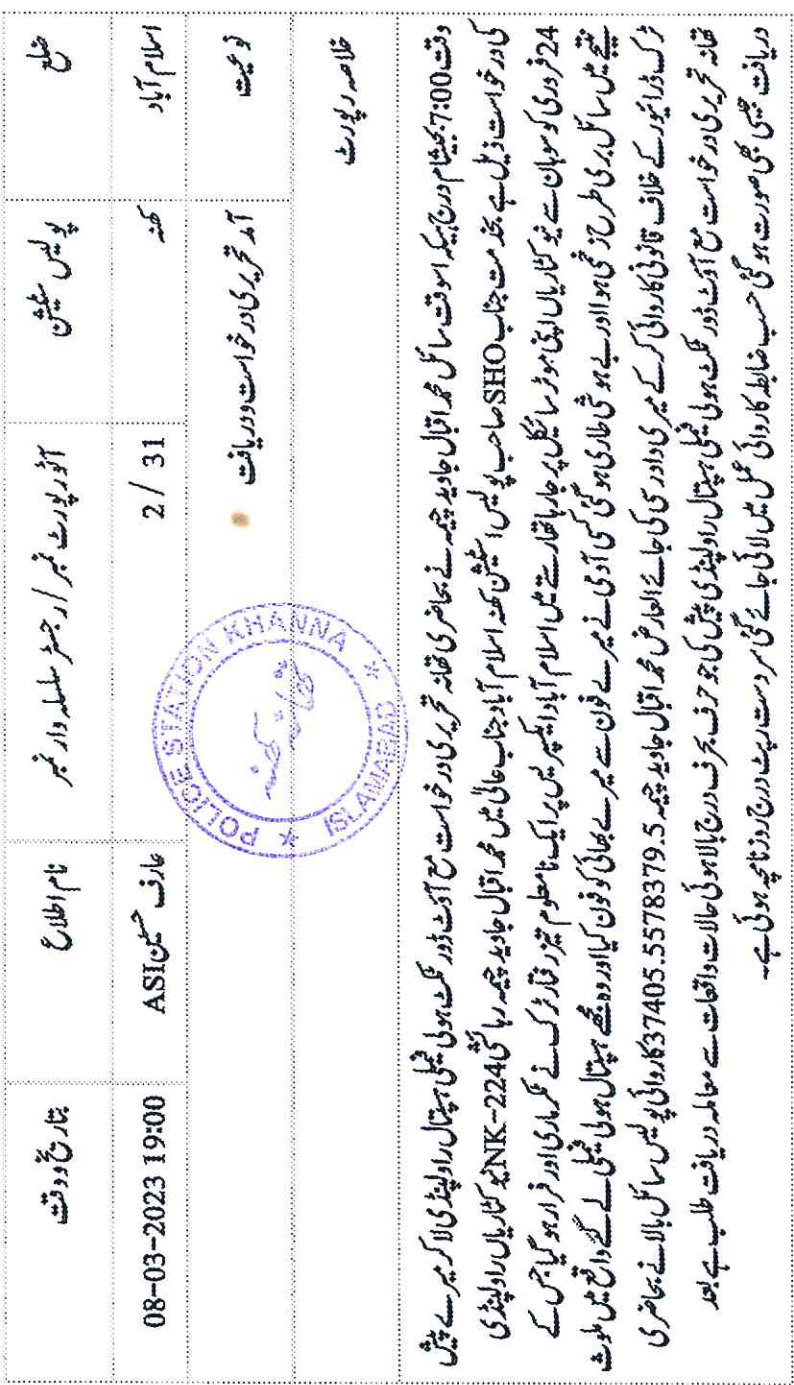 ضلع پولیس سٹیشن آئورپورٹ نمبر / رجسٹر سلسلہ وار نمبر نام اطلاع بتاریخ ووقت
اسلام آباد کھنہ 2 / 31 عارف حسین ASI 08-03-2023 19:00
نوعیت آمد تحریری درخواست ودریافت
خلاصہ رپورٹ
POLICE STATION KHANNA
تھانہ کھنہ
ISLAMABAD
وقت 7:00 بجے شام درج ہیکہ اسوقت سائل محمد اقبال جاوید چیمہ نے بحاضری تھانہ تحریری درخواست مع آوٹ ڈور ٹکٹ ہولی فیملی ہسپتال راولپنڈی لا کر میرے پیش
کی درخواست ذیل ہے بخدمت جناب SHO صاحب پولیس اسٹیشن کھنہ اسلام آباد جناب عالی میں محمد اقبال جاوید چیمہ رہائشی NK-224 نیو کٹاریاں راولپنڈی
24 فروری کو سوہان سے نیو کٹاریاں اپنی موٹر سائیکل پر جا رہا تھا رستے میں اسلام آباد ایکسپریس پر ایک نامعلوم تیز رفتار ٹرک نے ٹکر ماری اور فرار ہو گیا جس کے
نتیجے میں سائل بری طرح زخمی ہوا اور بے ہوشی طاری ہو گئی کسی آدمی نے میرے فون سے میرے بھائی کو فون کیا اور وہ مجھے ہسپتال ہولی فیملی لے گئے واقع میں ملوث
ٹرک ڈرائیور کے خلاف قانونی کاروائی کر کے میری دادرسی کی جائے العارض محمد اقبال جاوید چیمہ 37405.5578379.5 کاروائی پولیس سائل بالا نے بحاضری
تھانہ تحریری درخواست مع آوٹ ڈور ٹکٹ ہولی فیملی ہسپتال راولپنڈی پیش کی جو حرف بحرف درج بالا ہوئی حالات واقعات سے معاملہ دریافت طلب ہے بعد
دریافت جیسی بھی صورت ہو گئی حسب ضابطہ کاروائی عمل میں لائی جائے گئی سر دست رپٹ درج روزنامچہ ہوئی ہے۔